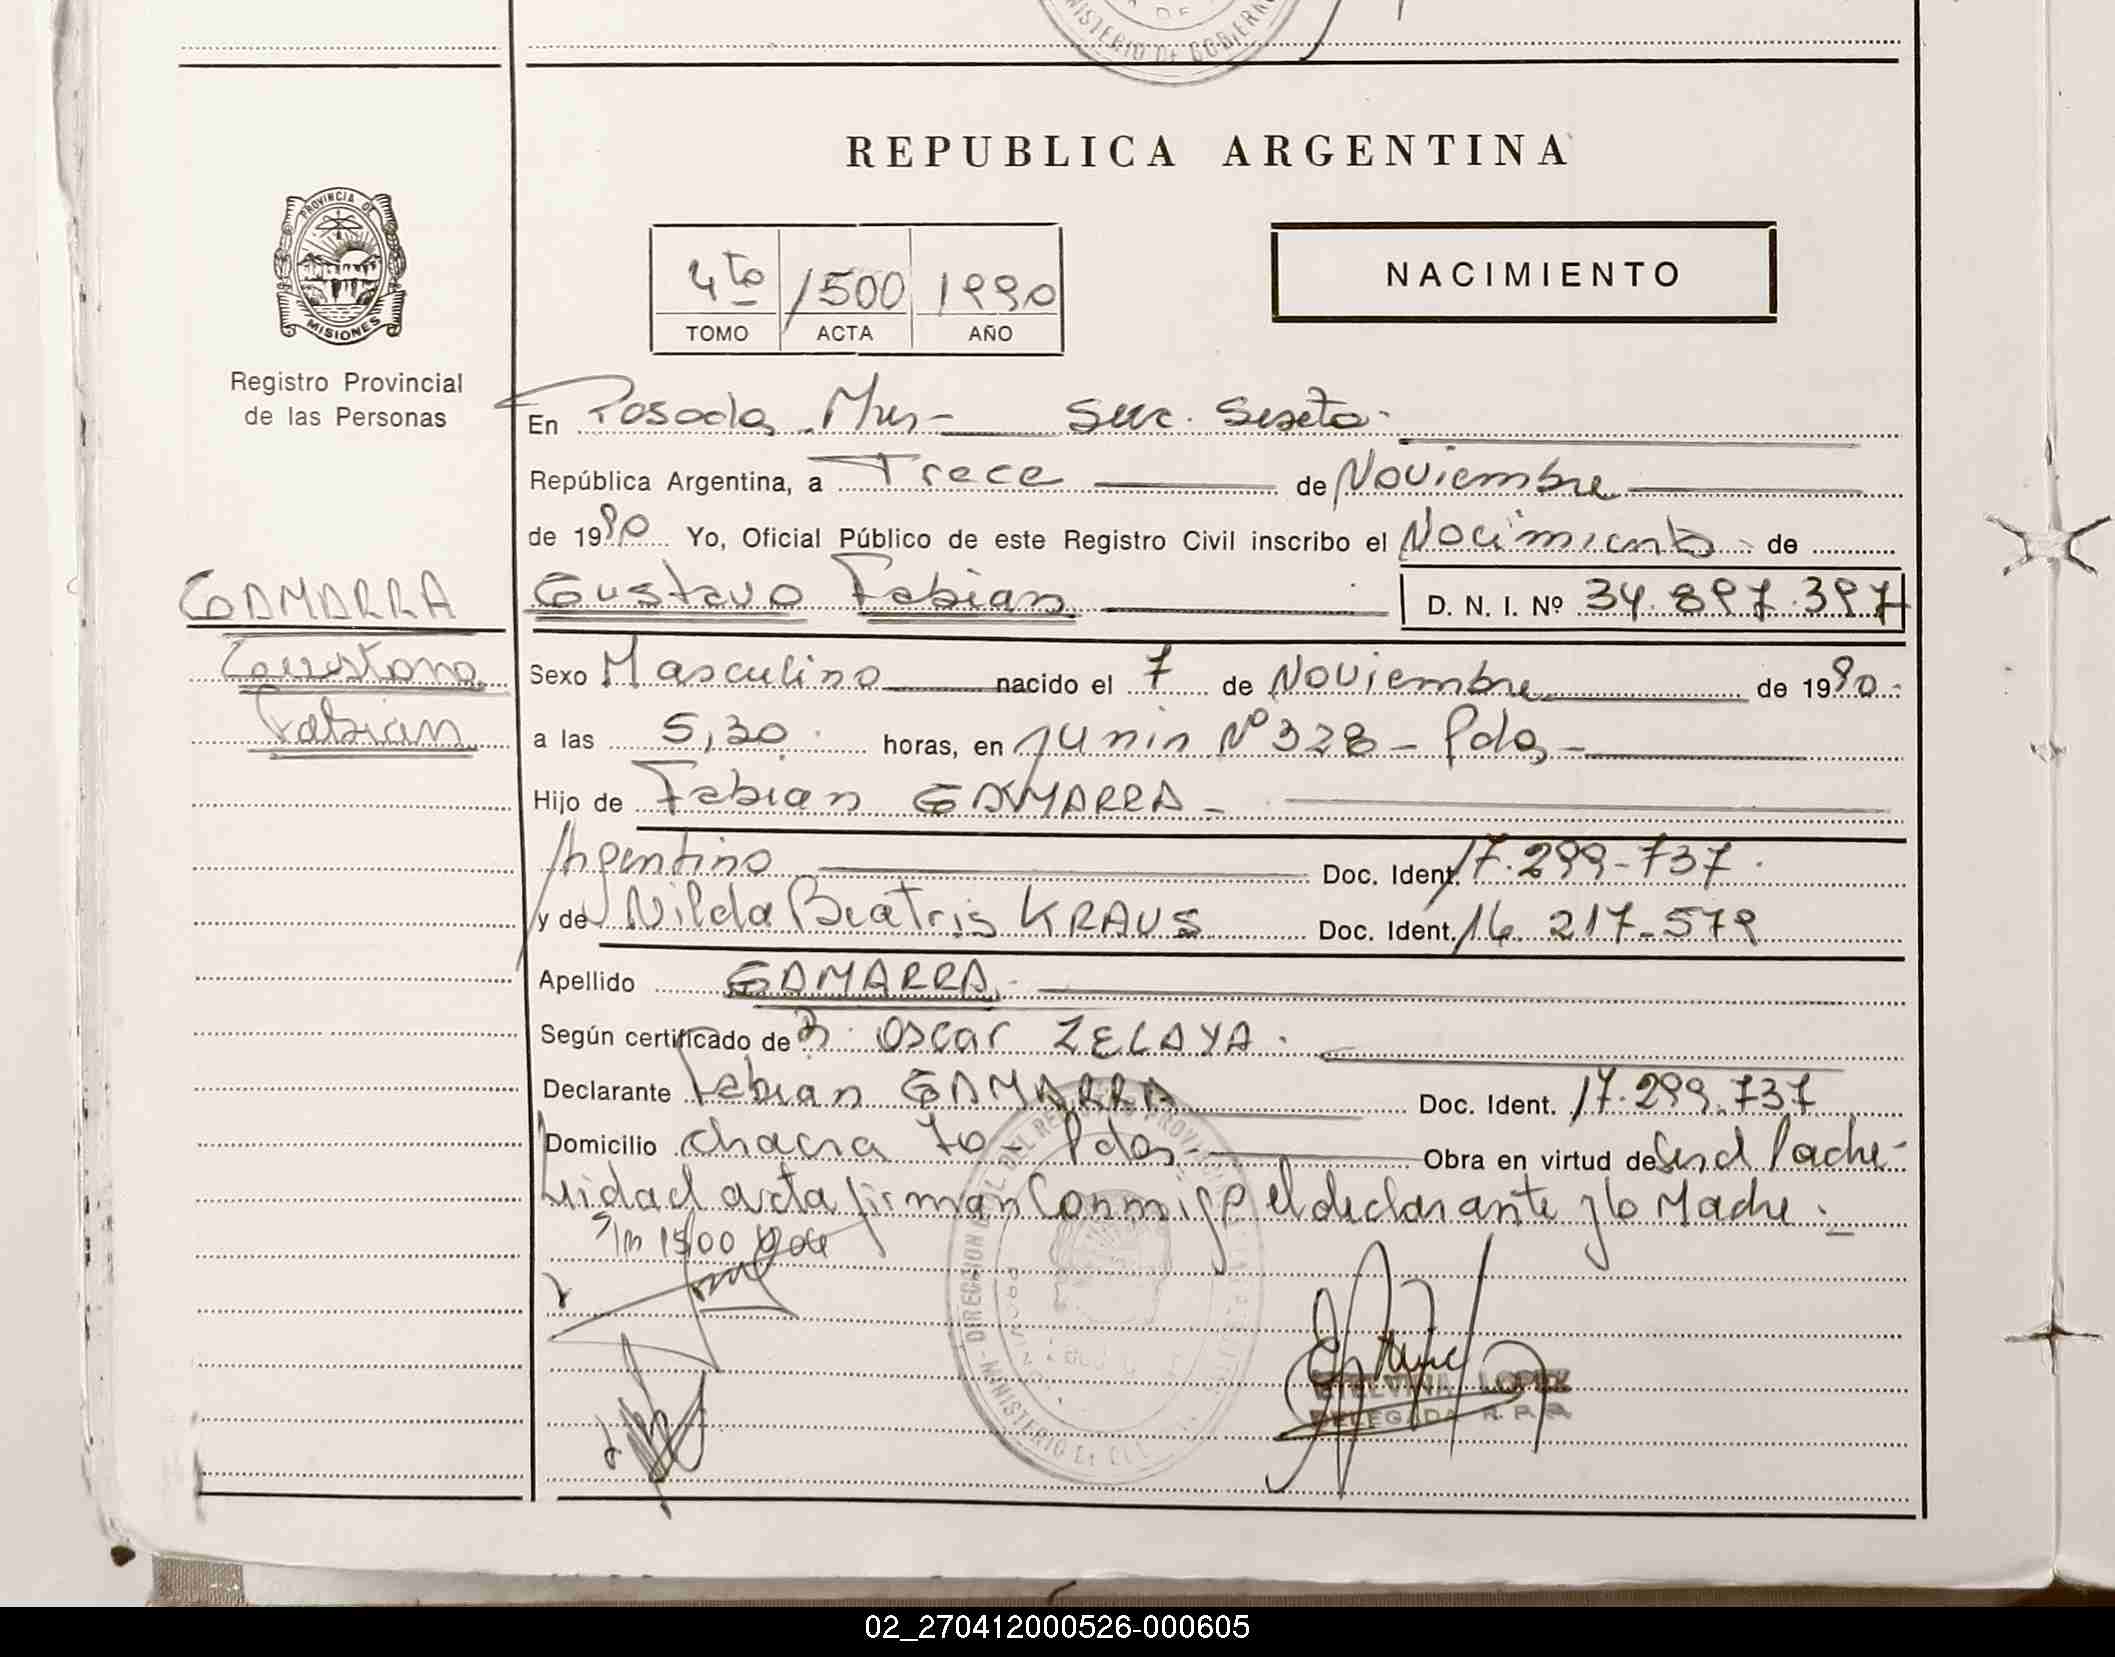 MINISTERIO DE GOBIERN
REPUBLICA ARGENTINA
PROVINCIA DE
MISIONES
4to 1500 1990
TOMO ACTA AÑO
NACIMIENTO
Registro Provincial
de las Personas
En Posadas Mnes- Secc. Sexta-
República Argentina, a Trece de Noviembre
de 1990 Yo, Oficial Público de este Registro Civil inscribo el Nacimiento de
GAMARRA
Gustavo Fabian D. N. I. Nº 34.897.397
Gustavo
Fabian
Sexo Masculino nacido el 7 de Noviembre de 1990.
a las 5,30 horas, en Junin Nº 328 - Pdas -
Hijo de Fabian GAMARRA -
Argentino Doc. Ident. 17.299-737.
y de Nilda Beatris KRAUS Doc. Ident. 16.217-579
Apellido GAMARRA.-
Según certificado de Oscar ZELAYA.
Declarante Fabian GAMARRA Doc. Ident. 17.299.737
Domicilio chacra 70 - Pdas.- Obra en virtud de Ser el Padre-
Leida el acta firman Conmigo el declarante y la Madre.-
1500
ETELVINA LOPEZ
DELEGADA R. P. P.
02_270412000526-000605